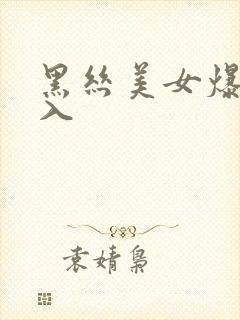 黑丝美女爆
入
袁婧枭